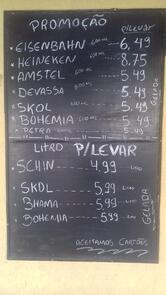 PROMOÇÃO
P/LEVAR
EISENBAHN 600ML - 6,49
HEINEKEN 600ML - 8.75
AMSTEL 600ML - 5.49
DEVASSA 600ML - 5.49
SKOL 600ML - 5.49
BOHEMIA 600ML - 5.49
PETRA 5.49
LITRO P/LEVAR
SCHIN ---- 4.99 LITRO
SKOL ---- 5,99 LITRO
BHAMA ---- 5,99 LITRO
BOHEMIA ---- 5,99 LITRO
GELADA
ACEITAMOS CARTÕES